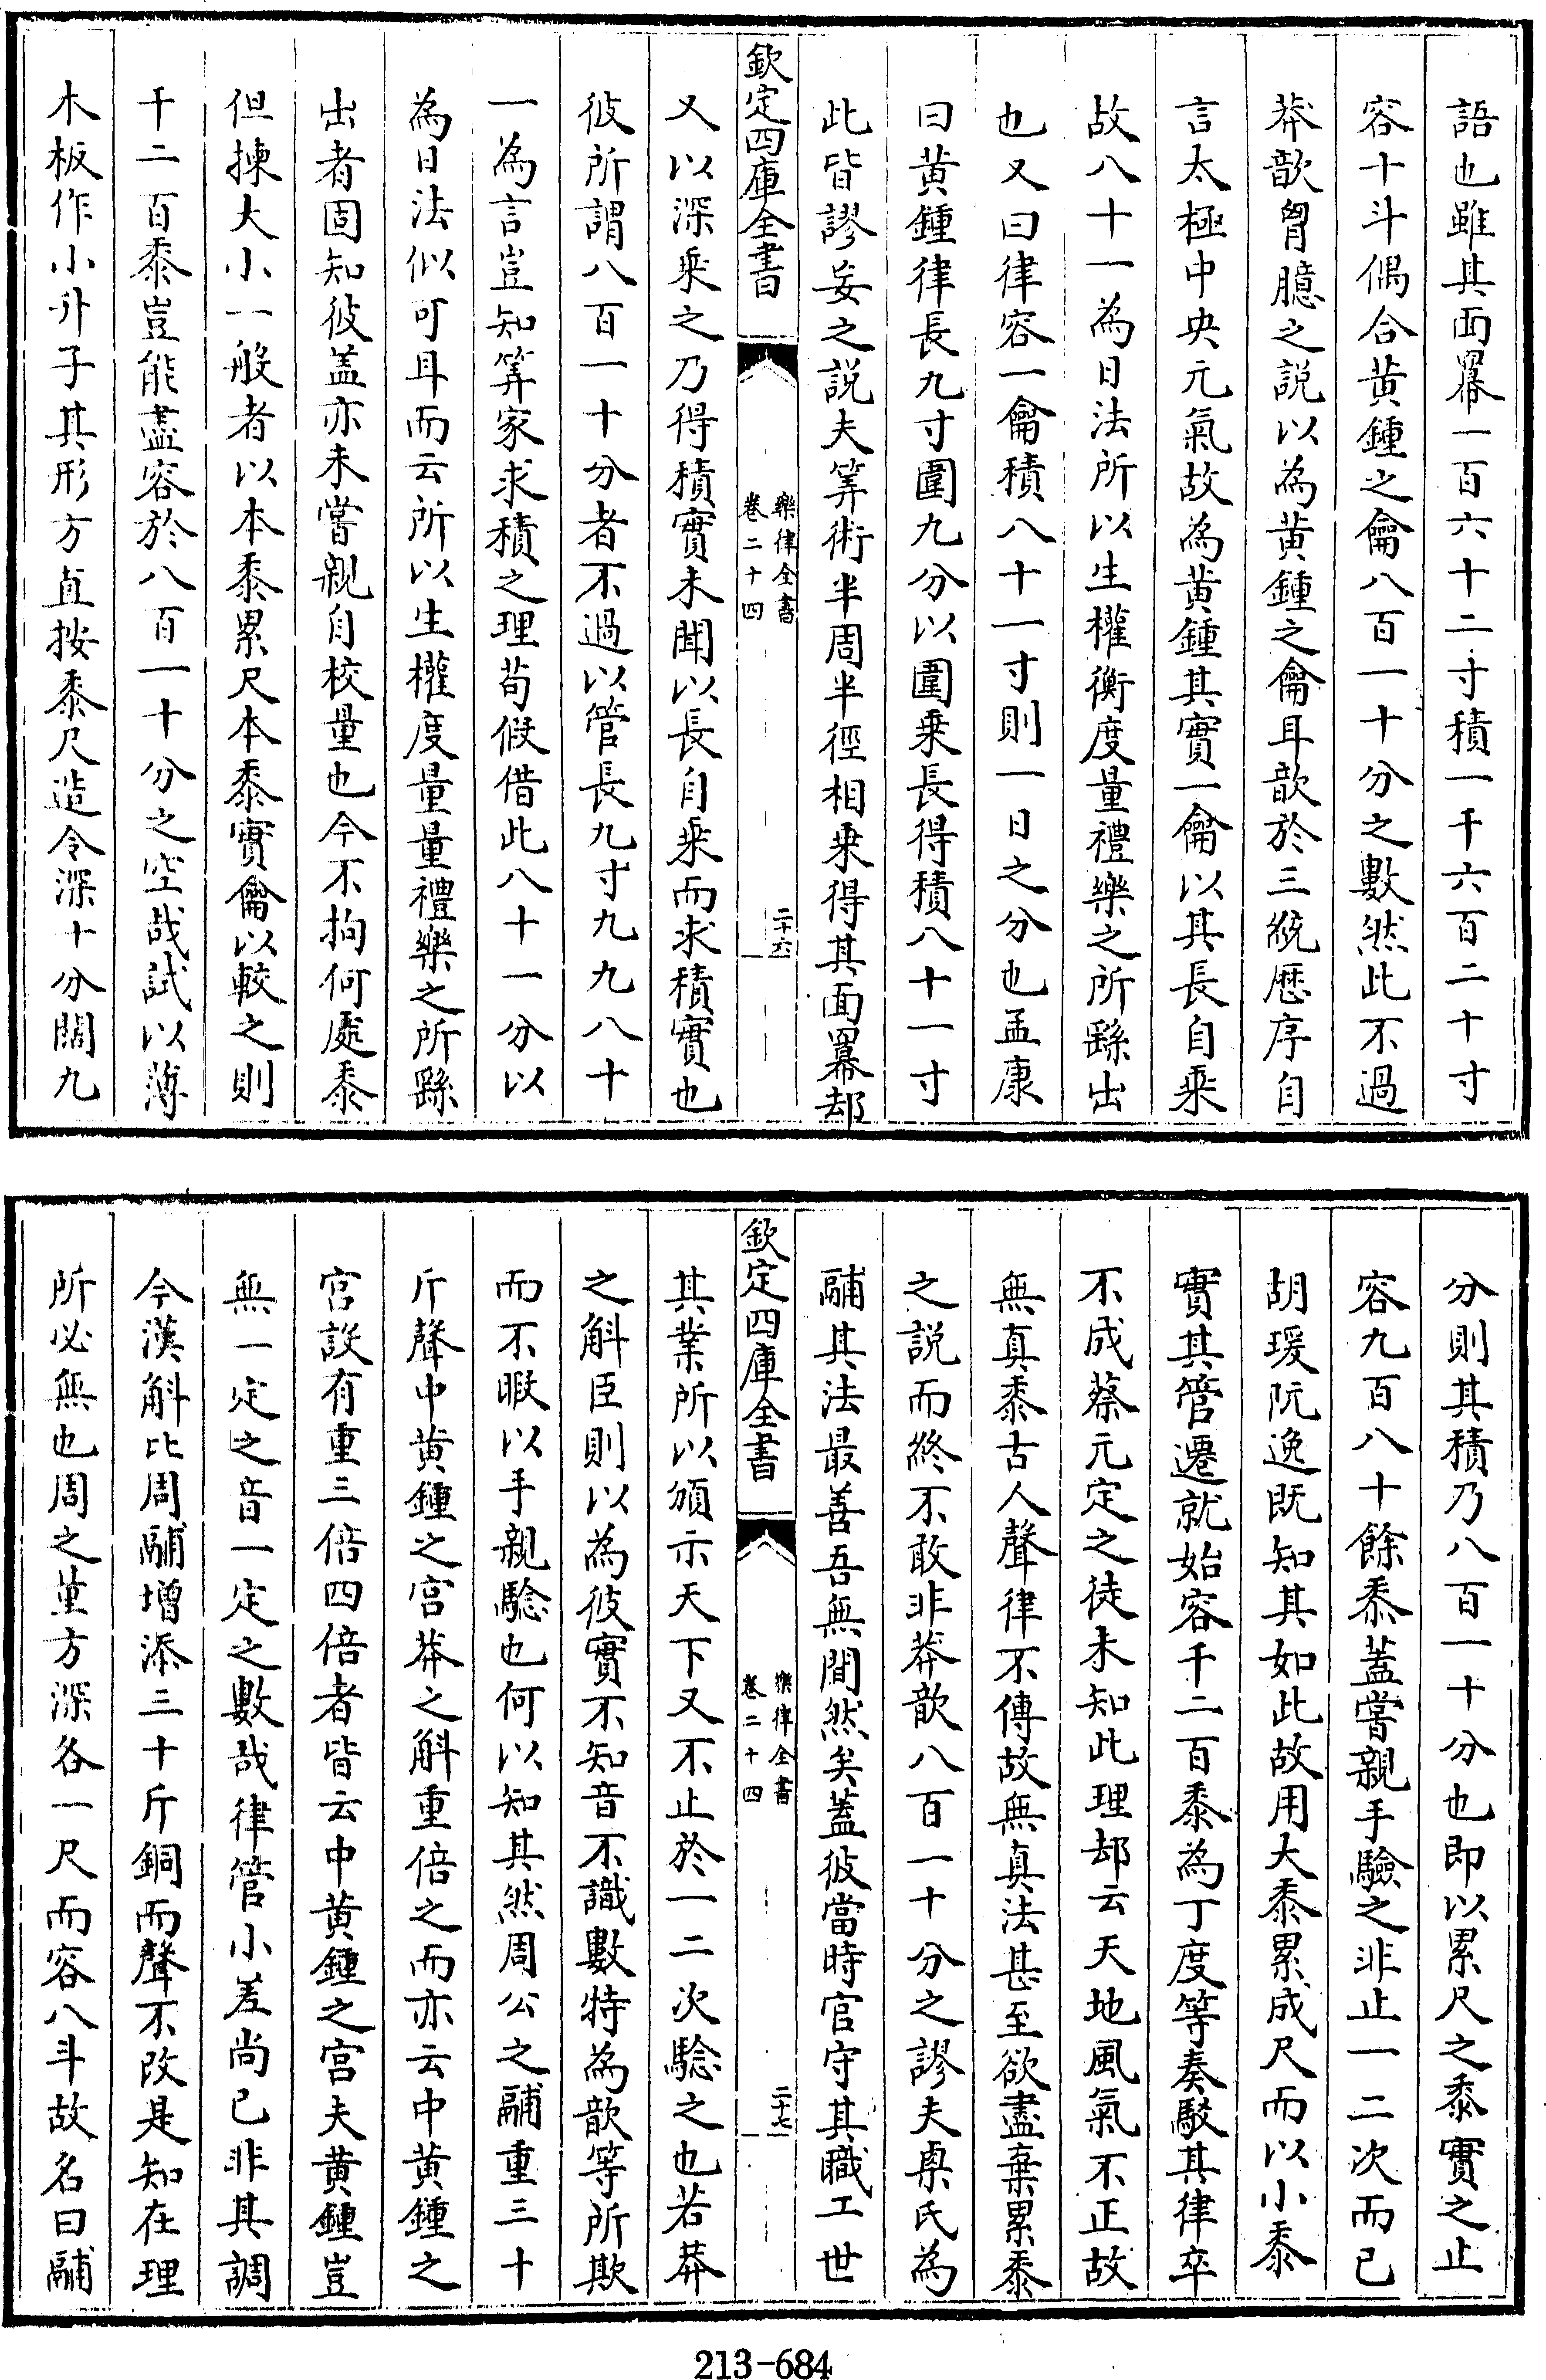 語也雖其面羃一百六十二寸積一千六百二十寸
容十斗偶合黄鍾之龠八百一十分之數然此不過
莽歆胷臆之説以為黄鍾之龠耳歆於三統厯序自
言太極中央元氣故為黄鍾其實一龠以其長自乘
故八十一為日法所以生權衡度量禮樂之所繇出
也又曰律容一龠積八十一寸則一日之分也孟康
曰黄鍾律長九寸圍九分以圍乘長得積八十一寸
此皆謬妄之説夫筭術半周半徑相乗得其面羃却
欽定四庫全書
樂律全書
卷二十四
二十六
又以深乗之乃得積實未聞以長自乗而求積實也
彼所謂八百一十分者不過以管長九寸九九八十
一為言豈知筭家求積之理苟假借此八十一分以
為日法似可耳而云所以生權度量量禮樂之所繇
出者固知彼盖亦未嘗親自校量也今不拘何處黍
但揀大小一般者以本黍累尺本黍實龠以較之則
千二百黍豈能盡容於八百一十分之空哉試以薄
木板作小升子其形方直按黍尺造令深十分闊九
分則其積乃八百一十分也即以累尺之黍實之止
容九百八十餘黍蓋嘗親手驗之非止一二次而已
胡瑗阮逸既知其如此故用大黍累成尺而以小黍
實其管遷就始容千二百黍為丁度等奏駁其律卒
不成蔡元定之徒未知此理却云天地風氣不正故
無真黍古人聲律不傳故無真法甚至欲盡棄累黍
之説而終不敢非莽歆八百一十分之謬夫㮚氏為
鬴其法最善吾無間然矣蓋彼當時官守其職工世
欽定四庫全書
樂律全書
卷二十四
二十七
其業所以頒示天下又不止於一二次騐之也若莽
之斛臣則以為彼實不知音不識數特為歆等所欺
而不暇以手親騐也何以知其然周公之鬴重三十
斤聲中黄鍾之宫莽之斛重倍之而亦云中黄鍾之
宫設有重三倍四倍者皆云中黄鍾之宫夫黄鍾豈
無一定之音一定之數哉律管小差尚已非其調
今漢斛比周鬴增添三十斤銅而聲不改是知在理
所必無也周之董方深各一尺而容八斗故名曰鬴
213-684